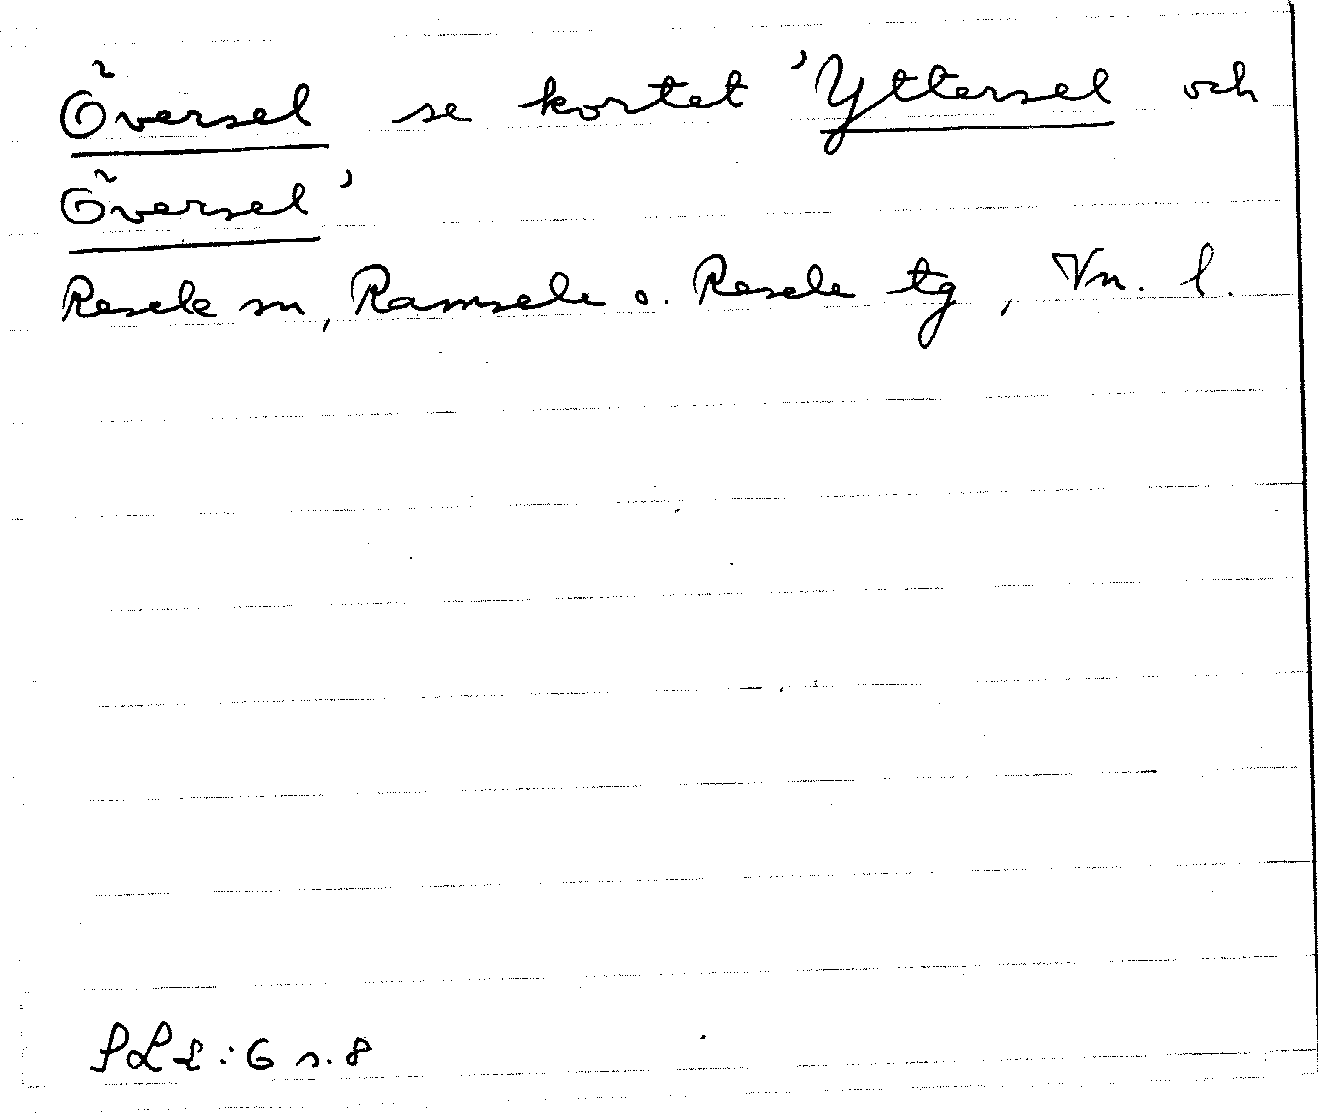 Översel se kortet 'Yttersel och
Översel'
Resele sn, Ramsele o. Resele tg, Vn. l.
:6 s. 8